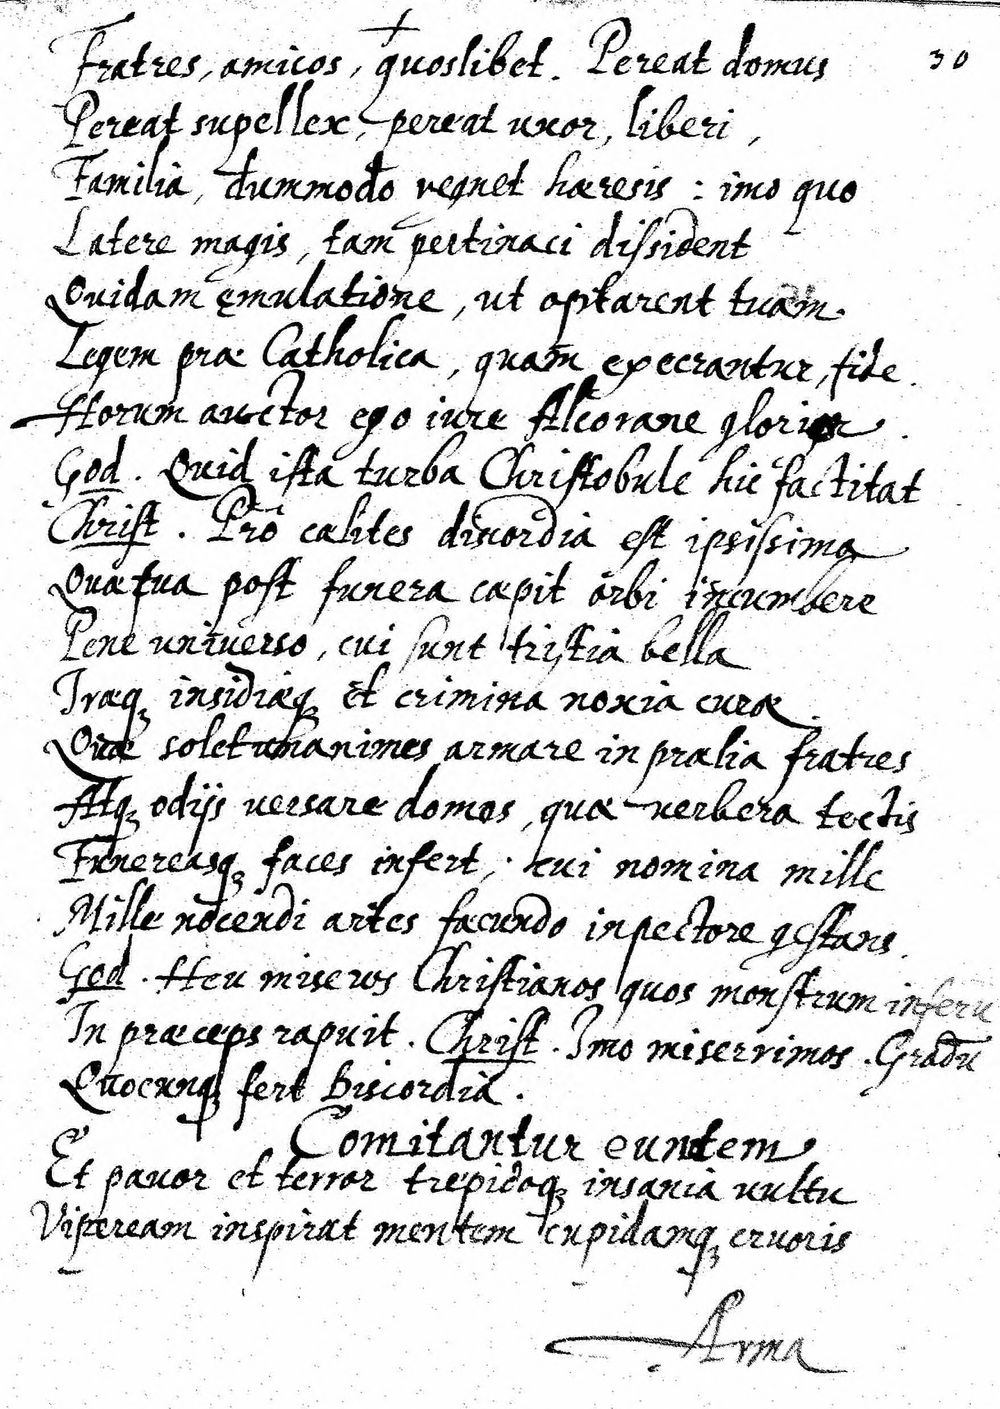 30
Fratres, amicos, quoslibet. Pereat domus
Pereat supellex, pereat uxor, liberi,
Familia, dummodo regnet hæresis : imo quo
Latere magis, tam pertinaci dissident
Quidam ęmulatione, ut optarent tuam
Legem præ Catholica, quam execrantur, fide.
Horum auctor ego iure Alcorane glorior.
God. Quid ista turba Christobule hic factitat
Christ. Prô cælites discordia est ipsissima
Quæ tua post funera cæpit orbi incumbere
Pene universo, cui sunt tristia bella
Iræq; insidiæq; et crimina noxia curæ.
Quæ solet unanimes armare in prælia fratres
Atq; odijs versare domos, quæ verbera tectis
Funereasq; faces infert, cui nomina mille
Mille nocendi artes fæcundo in pectore gestans.
God. Heu miseros Christianos quos monstrum inferū
In præceps rapuit. Christ. Imo miserrimos. Gradū
Quocunq; fert Discordia.
Comitantur euntem
Et pavor et terror trepidoq; insania vultu
Vipeream inspirat mentem cupidamq; cruoris
Arma